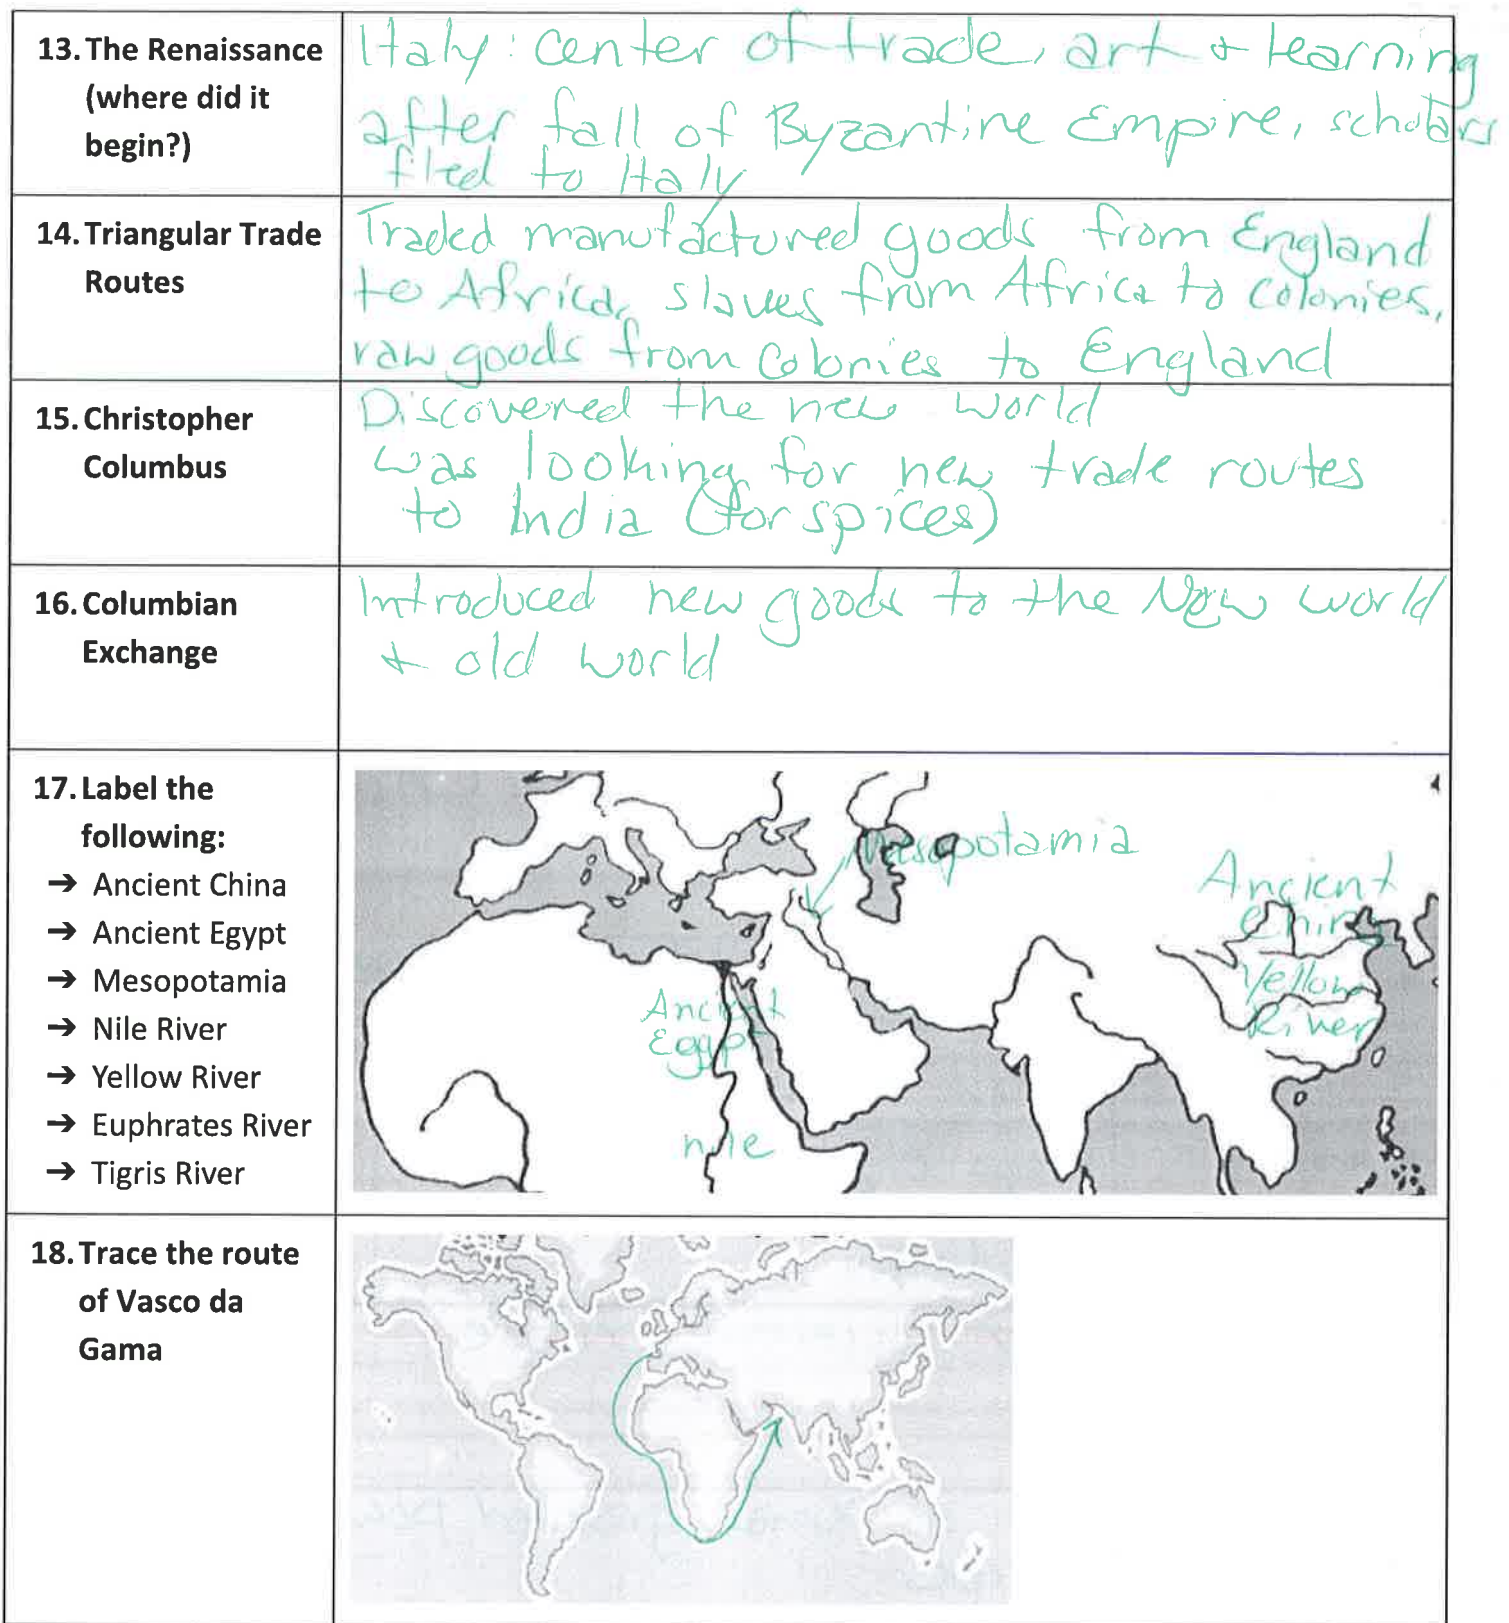 13. The Renaissance
(where did it
begin?)
Italy: center of trade, art + learning
after fall of Byzantine Empire, scholars
fled to Italy
14. Triangular Trade
Routes
Traded manufactured goods from England
to Africa, slaves from Africa to colonies,
raw goods from Colonies to England
15. Christopher
Columbus
Discovered the new world
was looking for new trade routes
to India (for spices)
16. Columbian
Exchange
Introduced new goods to the New world
+ old world
17. Label the
following:
→ Ancient China
→ Ancient Egypt
→ Mesopotamia
→ Nile River
→ Yellow River
→ Euphrates River
→ Tigris River
Mesopotamia
Ancient
China
Yellow
River
Ancient
Egypt
nile
18. Trace the route
of Vasco da
Gama